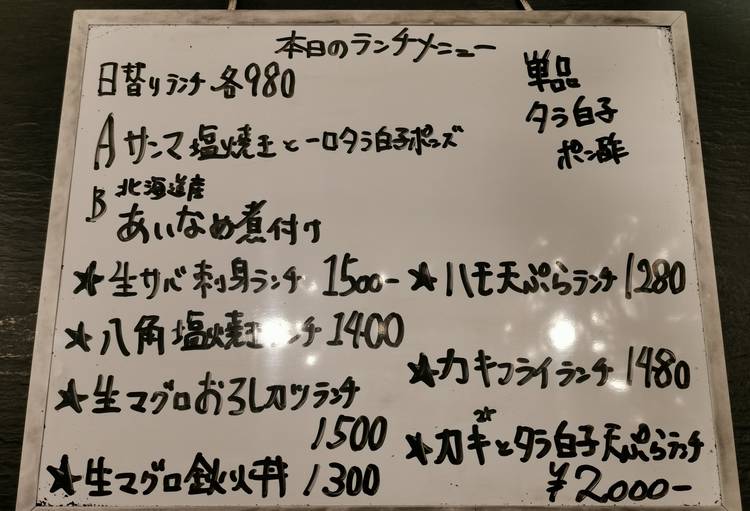 本日のランチメニュー
日替りランチ 各980
A サンマ塩焼王と一口タラ白子ポンズ
B 北海道産
あいなめ煮付け
★生サバ刺身ランチ 1500-
★八角塩焼王ランチ 1400
★生マグロおろしカツランチ
1500
★生マグロ鉄火丼 1300
単品
タラ白子
ポン酢
★ハモ天ぷらランチ 1280
★カキフライランチ 1480
★カキとタラ白子天ぷらランチ
¥2000-